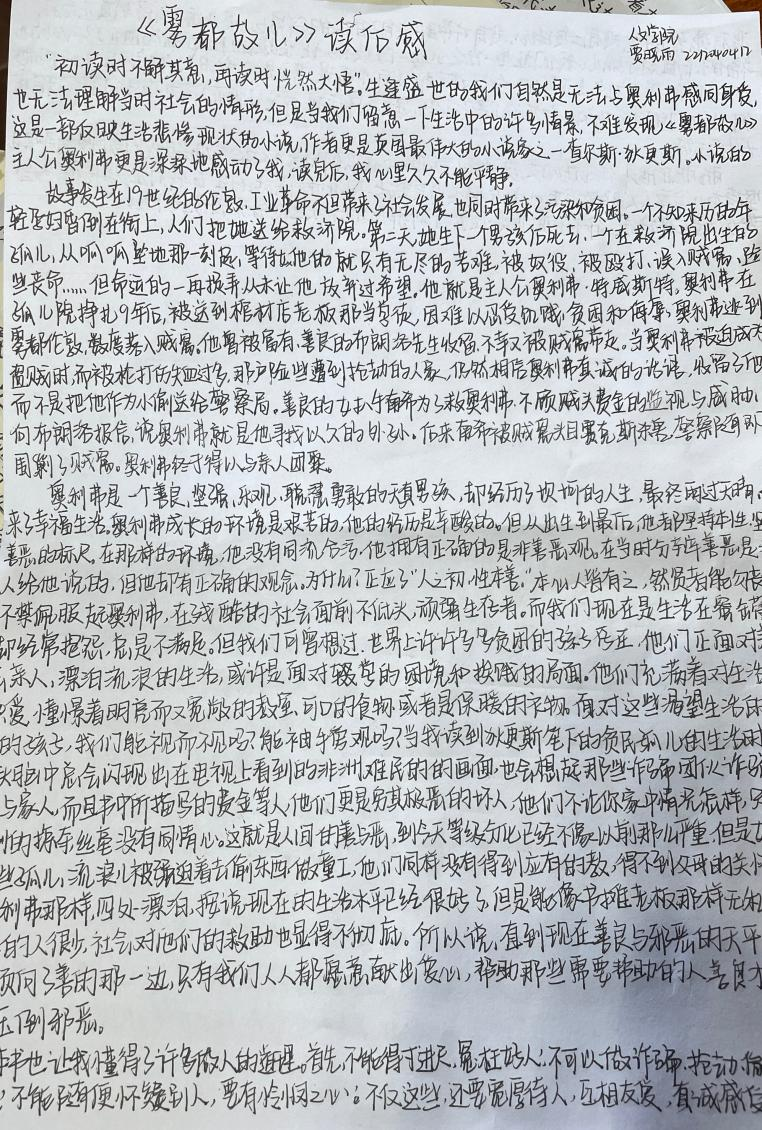 《雾都孤儿》读后感
人文学院
贾晓雨 2212040412
"初读时不解其意,再读时恍然大悟"。生逢盛世的我们自然是无法与奥利弗感同身受,
也无法理解当时社会的情形,但是当我们留意一下生活中的许多情景,不难发现,《雾都孤儿》
这是一部反映生活悲惨现状的小说,作者更是英国最伟大的小说家之一查尔斯·狄更斯。小说的
主人公奥利弗更是深深地感动了我,读完后,我心里久久不能平静。
故事发生在19世纪的伦敦。工业革命不但带来了社会发展,也同时带来了污染和贫困。一个不知来历的年
轻孕妇昏倒在街上,人们把她送给救济院。第二天,她生下一个男孩后死去,一个在救济院出生的
孤儿,从呱呱坠地那一刻起,等待他的就只有无尽的苦难,被奴役,被殴打,误入贼窝,险
些丧命……但命运的一再捉弄从未让他放弃过希望。他就是主人公奥利弗·特威斯特,奥利弗在
孤儿院挣扎9年后,被送到棺材店老板那当学徒。因难以忍受饥饿,贫困和侮辱,奥利弗逃到
雾都伦敦,数度落入贼窝。他曾被富有、善良的布朗洛先生收留,不幸又被贼窝带走。当奥利弗被迫成为
盗贼时而被枪打的失血过多,那户险些遭到抢劫的人家,仍然相信奥利弗真诚的话语,收留了他
而不是把他作为小偷送给警察局。善良的女扒手南希为了救奥利弗,不顾贼头费金的监视与威胁,
向布朗洛报信,说奥利弗就是他寻找以久的外孙。后来南希被贼窝头目赛克斯杀害,警察随即
围剿了贼窝。奥利弗终于得以与亲人团聚。
奥利弗是一个善良,坚强,乐观,聪慧勇敢的天真男孩,却经历了坎坷的人生,最终雨过天晴,
来了幸福生活。奥利弗成长的环境是艰苦的,他的经历是辛酸的。但从出生到最后,他都坚持本性,坚
善恶的标尺。在那样的环境,他没有同流合污,他拥有正确的是非善恶观。在当时分辨善恶是
人给他说的,但他却有正确的观念。为什么?正应了"人之初,性本善。"本心人皆有之,然贤者能勿丧
不禁佩服起奥利弗,在残酷的社会面前不低头,顽强生存者。而我们现在是生活在蜜
却经常抱怨,总是不满足。但我们可曾想过,世界上许许多多贫困的孩子存在,他们正面对
亲人,漂泊流浪的生活,或许是面对辍学的困境和挨饿的局面。他们充满着对生活
爱,憧憬着明亮而又宽敞的教室,可口的食物或者是保暖的衣物。面对这些渴望生活
的孩子,我们能视而不见吗?能袖手旁观吗?当我读到狄更斯笔下的贫民孤儿的生活时
脑中总会闪现出在电视上看到的非洲难民的的画面,也会想起那些诈骗团伙诈骗
与家人,而且书中所描写的费金等人,他们更是穷其极恶的坏人,他们不论你家中情况怎样,
的掠夺丝毫没有同情心。这就是人间的善与恶,到今天等级分化已经不像以前那么严重,但是
些孤儿,流浪儿被强迫着去偷东西,做童工,他们同样没有得到应有的教,得不到父母的关
利弗那样,四处漂泊,按说现在的生活水平已经很好了,但是能像书摊老板那样无私
的人很少,社会对他们的救助也显得不彻底。所以说,直到现在善良与邪恶的天平
倾向了善的那一边,只有我们人人都愿意献出爱心,帮助那些需要帮助的人,善良才
压倒邪恶。
本书也让我懂得了许多做人的道理。首先,不能得寸进尺,冤枉好人;不可以做诈骗,抢劫,偷
不能随便怀疑别人,要有怜悯之心;不仅这些,还要宽厚待人,互相友爱,真诚感